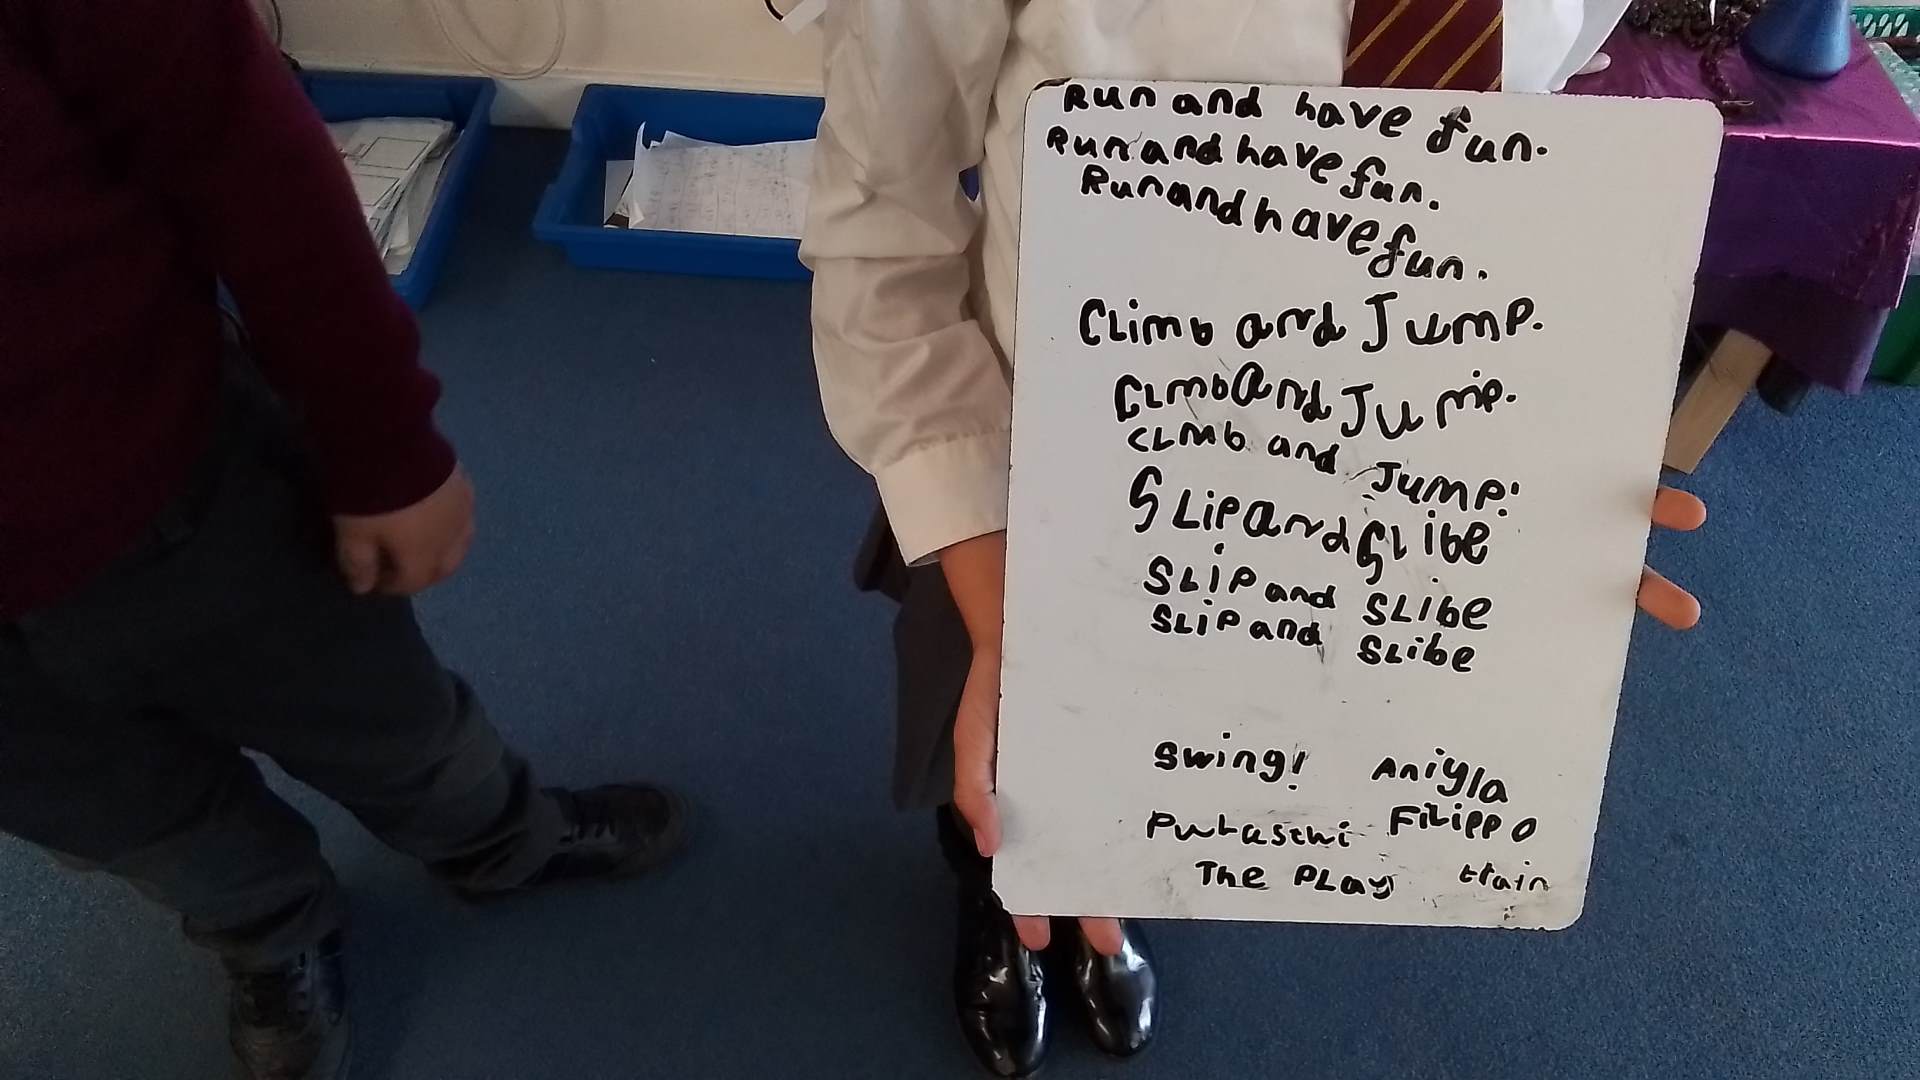 Run and have fun.
Run and have fun.
Run and have fun.
Climb and Jump.
Clmb and Jump.
Clmb and Jump!
Slip and Slibe
Slip and Slibe
Slip and Slibe
Swing! Aniyla
Filippo
The Play